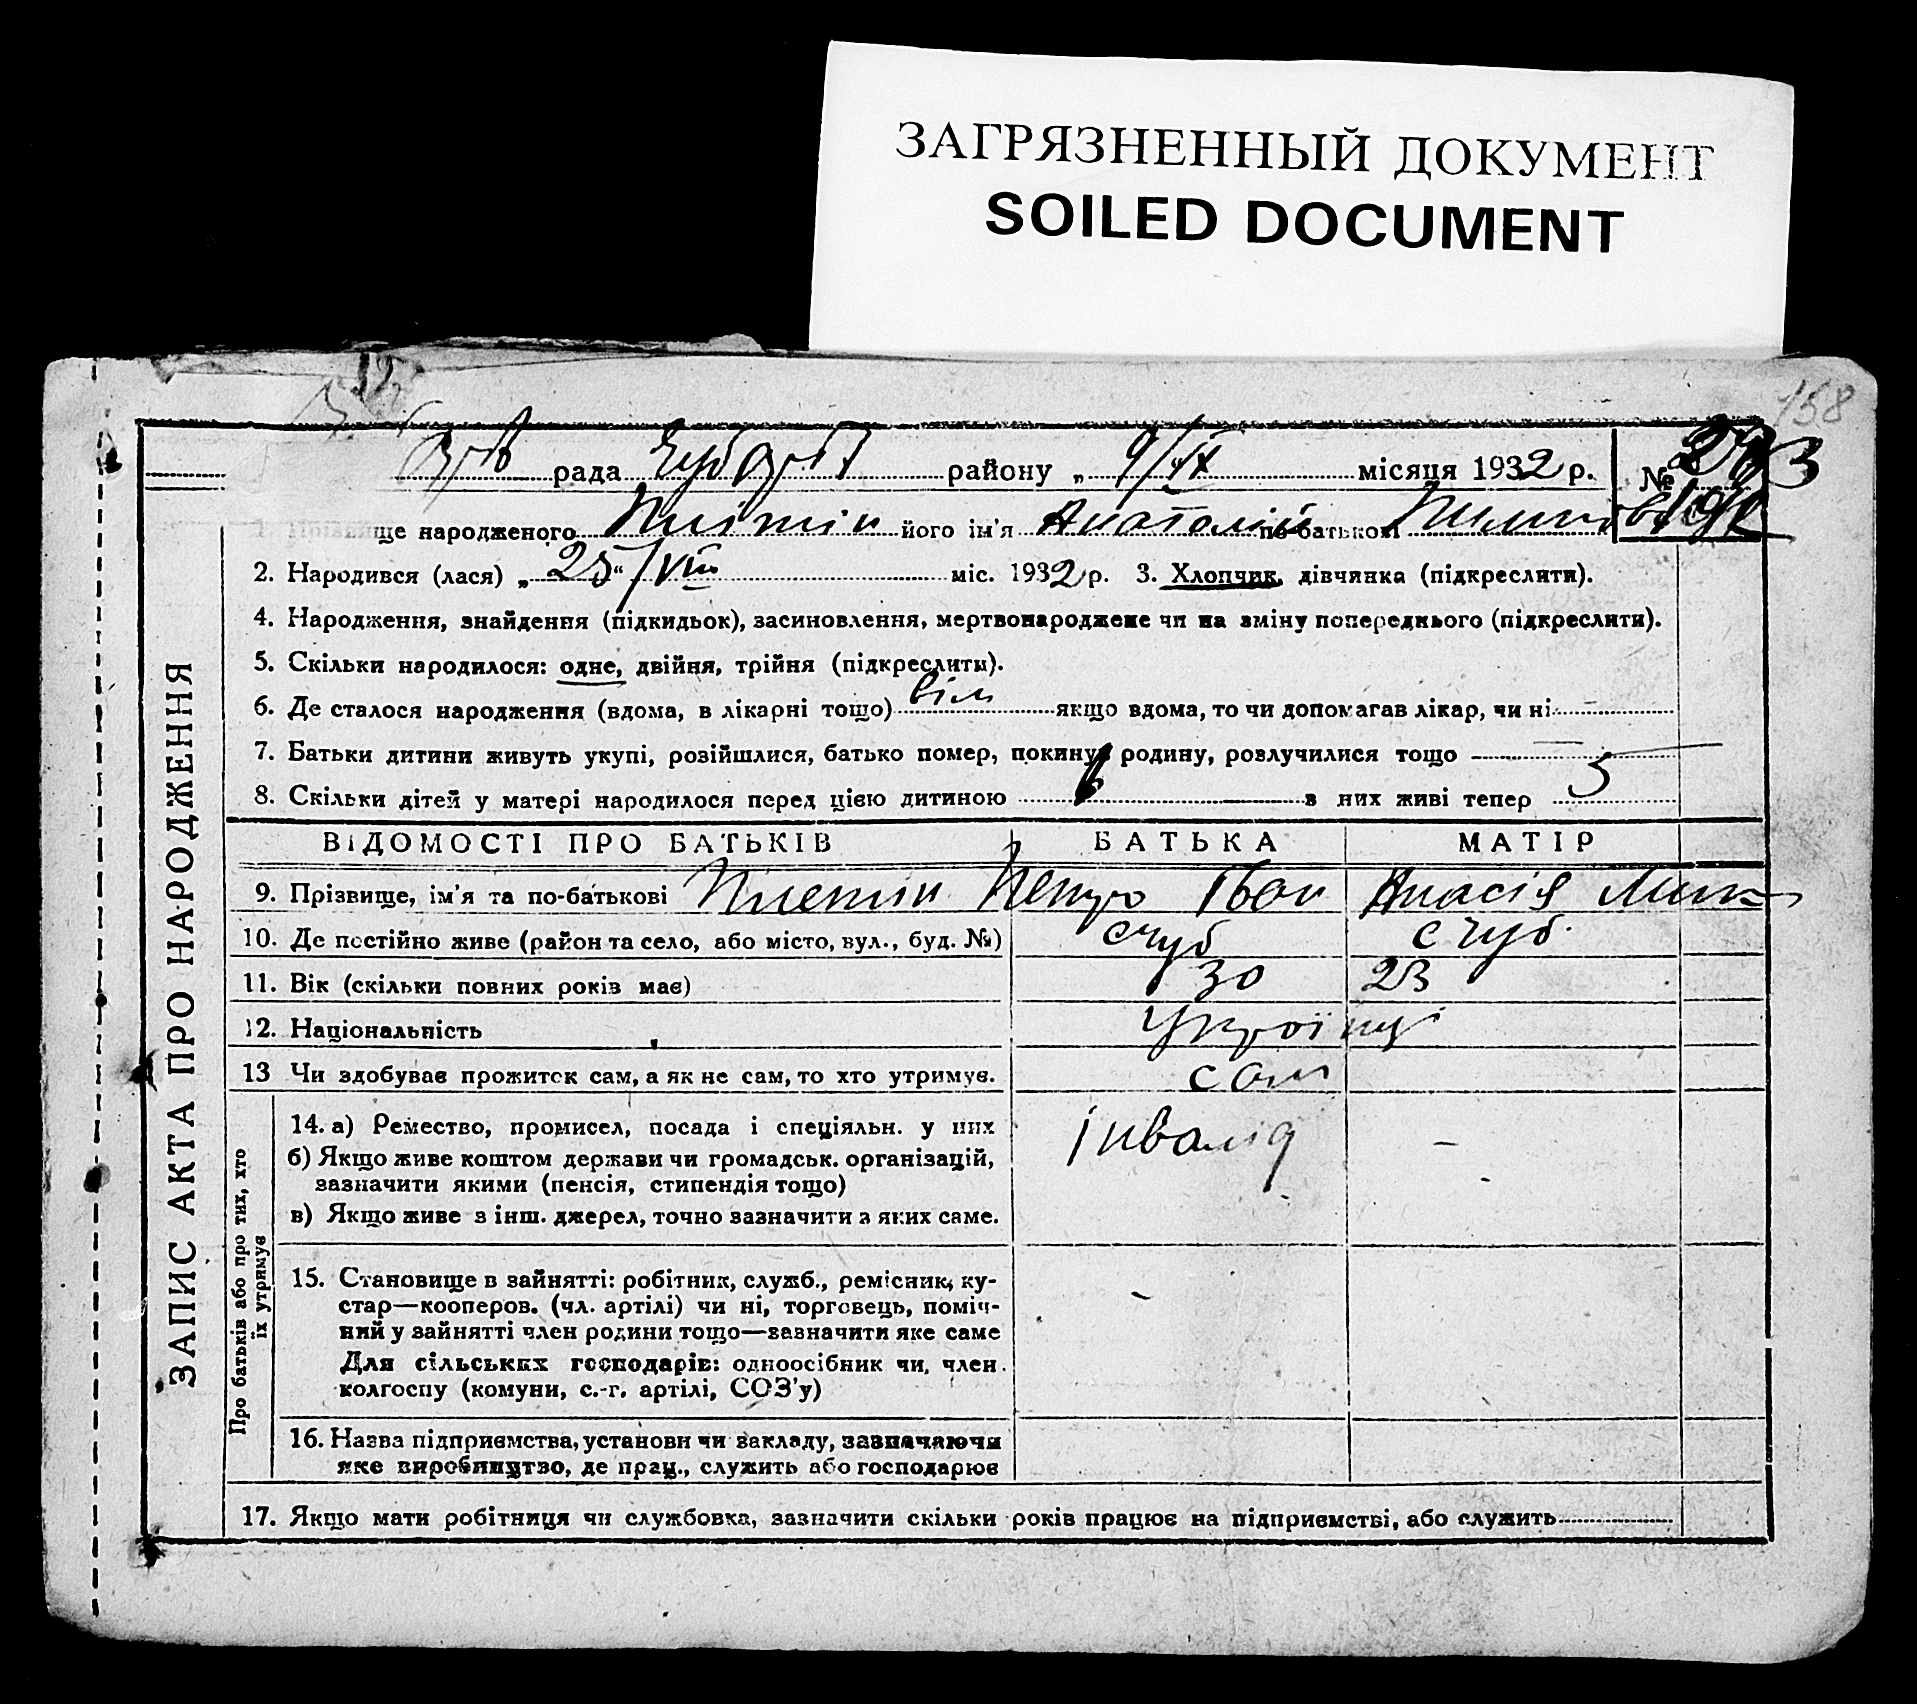 ЗАГРЯЗНЕННЫЙ ДОКУМЕНТ
SOILED DOCUMENT
158
рада району „ 9/ІХ місяця 1932 р. №
ще народженого його ім'я Анатолій по батькові
2. Народився (лася) „ 25 “ /VIII міс. 1932 р. 3. Хлопчик, дівчинка (підкреслити).
4. Народження, знайдення (підкидьок), засиновлення, мертвонароджене чи на зміну попереднього (підкреслити).
5. Скільки народилося: одне, двійня, трійня (підкреслити).
6. Де сталося народження (вдома, в лікарні тощо) якщо вдома, то чи допомагав лікар, чи ні –
7. Батьки дитини живуть укупі, розійшлися, батько помер, покинув родину, розлучилися тощо —
8. Скільки дітей у матері народилося перед цією дитиною 6 з них живі тепер 5
ВІДОМОСТІ ПРО БАТЬКІВ БАТЬКА МАТІР
9. Прізвище, ім'я та по-батькові Петро Іван
10. Де постійно живе (район та село, або місто, вул., буд. №) с Чуб с Чуб.
11. Вік (скільки повних років має) 30 23
12. Національність Українці
13 Чи здобуває прожиток сам, а як не сам, то хто утримує. сам
14. а) Ремество, промисел, посада і спеціяльн. у них інвалід –
б) Якщо живе коштом держави чи громадськ. організацій,
зазначити якими (пенсія, стипендія тощо)
в) Якщо живе з інш. джерел, точно зазначити з яких саме.
15. Становище в зайнятті: робітник, служб., ремісник, ку-
стар—кооперов. (чл. артілі) чи ні, торговець, поміч-
ний у зайнятті член родини тощо—зазначити яке саме
Для сільських господарів: одноосібник чи, член
колгоспу (комуни, с.-г. артілі, СОЗ'у)
16. Назва підприємства, установи чи закладу, зазначаючи
яке виробництво, де прац., служить або господарює
17. Якщо мати робітниця чи службовка, зазначити скільки років працює на підприємстві, або служить
ЗАПИС АКТА ПРО НАРОДЖЕННЯ
Про батьків або про тих, хто
їх утримує